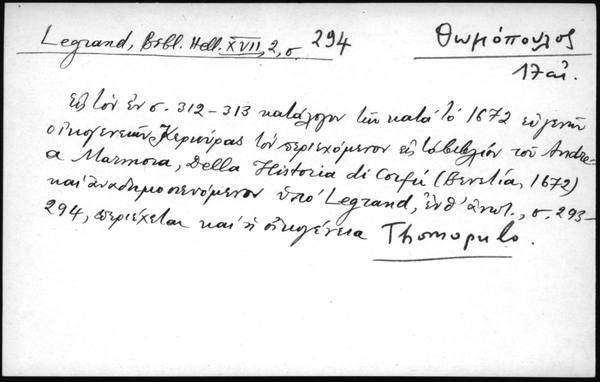 Legrand, Bibl. Hell. XVII, 2, σ. 294
Θωμόπουλος
17 αἰ.
Εἰς τὸν ἐν σ. 312-313 κατάλογον τῶν κατὰ τὸ 1672 εὐγενῶν
οἰκογενειῶν Κερκύρας τὸν περιεχόμενον εἰς τὸ βιβλίον τοῦ Andre-
a Marmora, Della Historia di Corfú (Βενετία, 1672)
καὶ ἀναδημοσιευόμενον ὑπὸ Legrand, ἔνθ' ἀνωτ., σ. 293-
294, περιέχεται καὶ ἡ οἰκογένεια Thomopulo.